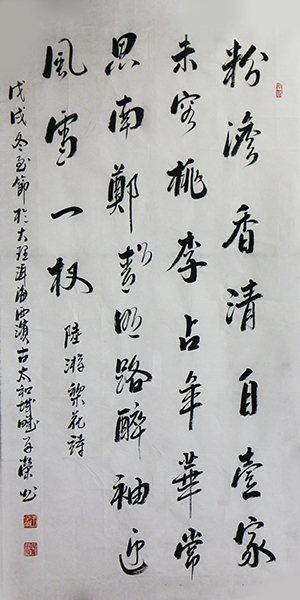 粉澹香清自壹家
未容桃李占年華常
思南鄭清明路醉袖迎
風雪一杈
陸游梨花詩
戊戌冬至節於大理洱海西濱古太和城畔